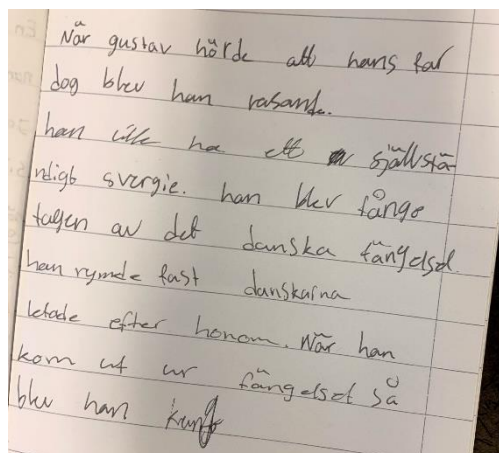 När gustav hörde att hans far
dog blev han rasande.
han ville ha ett självstä
ndigt svergie. han blev fånge
tagen av det danska fängelset
han rymde fast danskarna
letade efter honom. När han
kom ut ur fängelset så
blev han kung